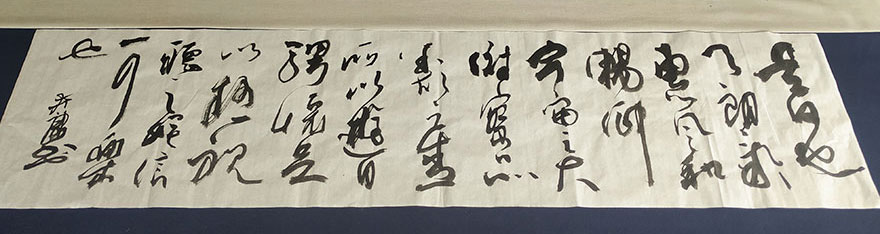 是日也
天朗氣
惠風和
暢仰
宇宙之大
俯察品
類之盛
所以遊目
騁懷足
以極視
聽之娛信
可樂
也